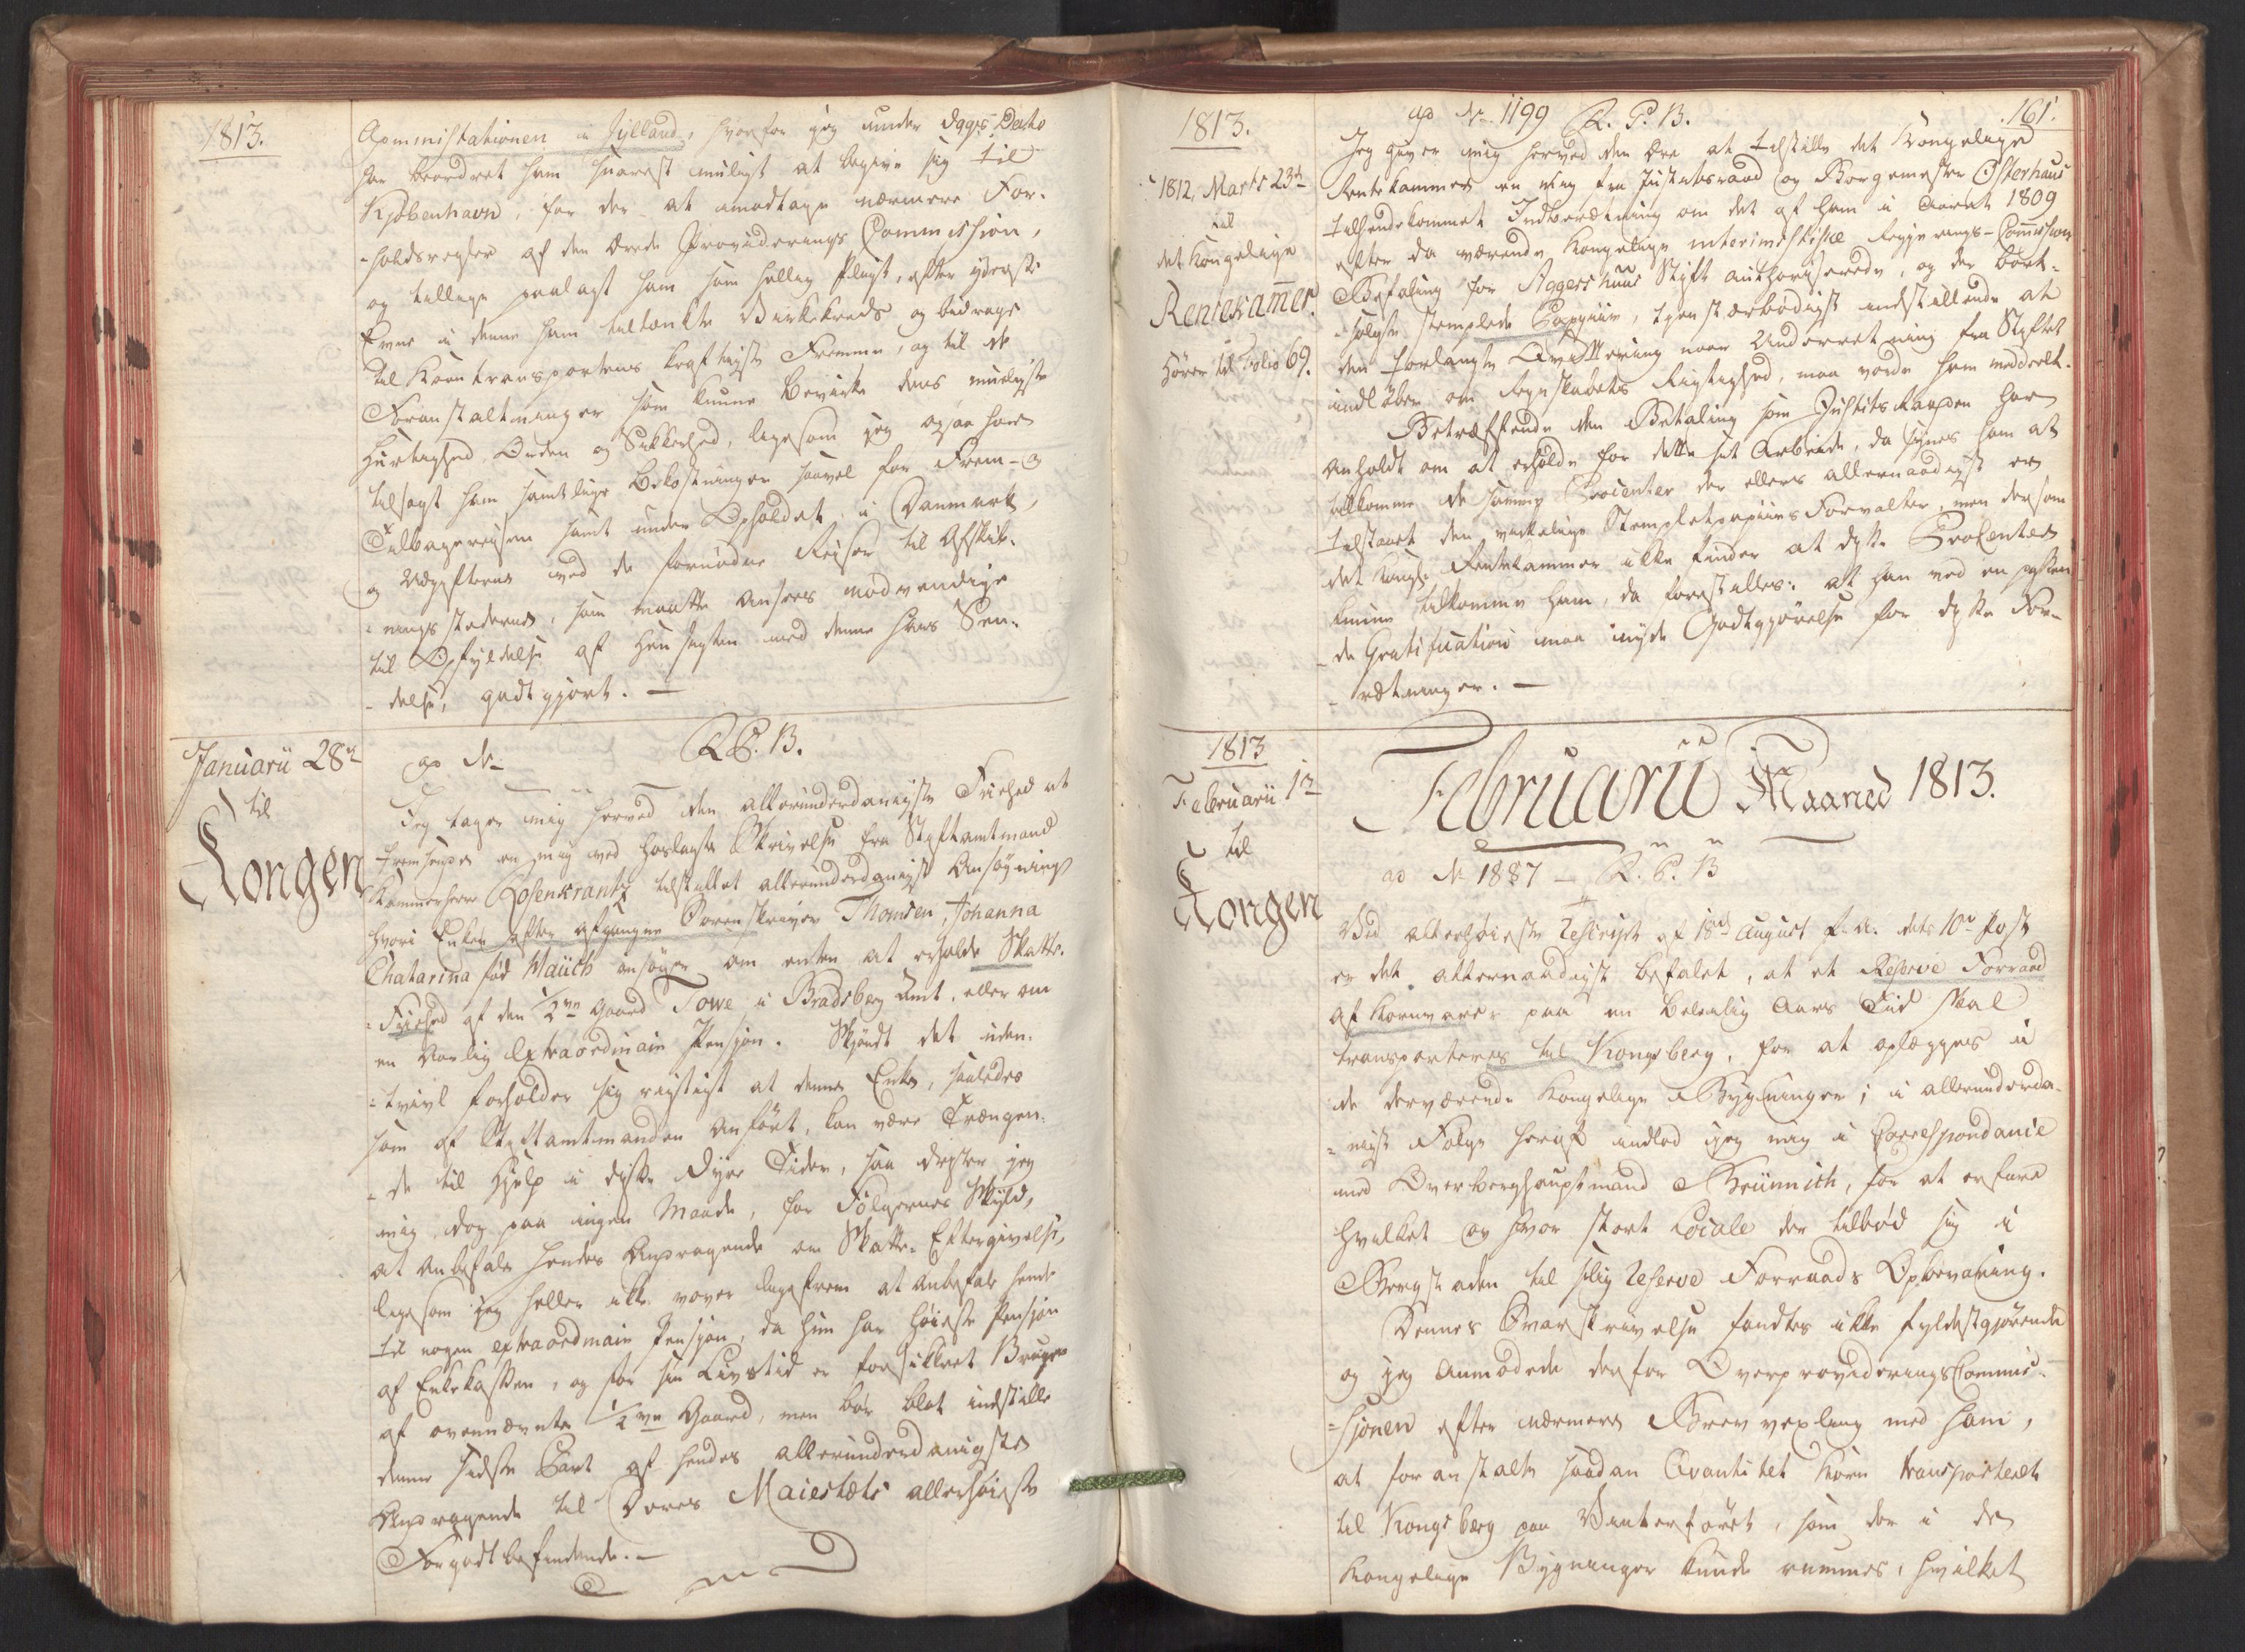 1813.
Commisstationen i Jylland, hvorfor jeg under Dags Dato
har beordret ham snarest muligt at begive sig til
Kjøbenhavn, for der at imodtage nærmere For-
-holdsregler af den Ærede Provideerings Commission,
og tillige paalagt ham som hellig Pligt, efter yderste
Evne i denne ham tiltænkte Virkekreds og bidrage
til Korntransportens kraftigste Fremme, og til de
Foranstaltninger som kunne bevirke dens mueligste
Hurtighed, Orden og Sikkerhed, ligesom jeg ogsaa har
tilsagt ham samtlige Bekostninger saavel for Frem- og
Tilbagereisen samt under Opholdet i Danmark,
og Udgifterne ved de fornødne Reiser til Afskib-
-nings stederne, som maatte ansees nødvendige
til Opfyldelse af Hensigten med denne hans Sen-
-delse, godtgjort. —
Januarii 28de
til
Kongen
ap No — R. P. B.
Jeg tager mig herved den allerunderdanigste Friehed at
fremsende en mig ved hoslagte Skrivelse fra Stiftamtmand
Kammerherre Rosenkrantz tilstillet allerunderdanigst Ansøgning
hvori Enken efter afgangne Sorenskriver Thomsen, Johanna
Chatarina fød Maüch ansøger om enten at erholde Skatte-
-Friehed af den 1/2ve Gaard Towe i Bradsberg Amt, eller om
en aarlig Extraordinair Pension. Skjøndt det uden-
-tvivl forholder sig rigtigt at denne Enke, saaledes
som af Stiftamtmanden anført, kan være Trængen-
-de til Hjelp i disse dyre Tider, saa drister jeg
mig dog paa ingen Maade, for Følgernes Skyld,
at anbefale hendes Andragende om Skatte-Eftergivelse,
ligesom jeg heller ikke vover ligefrem at anbefale hende
til nogen extraordinair Pension, da hun har høieste Pension
af Enkekassen, og for sin Livstid er forsikkret Brugen
af ovennævnte 1/2ve Gaard, men bør blot indstille
denne sidste Part af hendes allerunderdanigste
Andragende til Deres Maiestæts allerhøieste
Forgodtbefindende. —
161.
1813.
1812, Marts 23de
til
det Kongelige
Rentekamer.
Hører til Folio 69.
ap No. 1199 R. P. B.
Jeg giver mig herved den Ære at tilstille det Kongelige
Rentekammer en mig fra Justitsraad og Borgemester Osterhaus
tilhendekommet Indberetning om det af ham i Aaret 1809
efter da værende Kongelige interimistiske Regjerings-Commission
Befaling for Aggershuus Stift authoriserede, og der bort-
-solgte stemplede Papiir, tjenstærbødigst indstillende at
den forlangte Qvittering naar Underretning fra Stiftet
indløber om Regnskabets Rigtighed, maa vorde ham meddeelt.
Betræffende den Betaling som Justits Raaden har
Anholdt om at erholde for dette sit Arbeide, da synes ham at
tilkomme de samme Procenter der ellers allernaadigst er
tilstaaet den virkelige Stempletpapiirs Forvalter, men dersom
det Kongl. Rentekammer ikke finder at disse Procenter
kunne tilkomme ham, da forestilles: at han ved en passen-
-de Gratification maa nyde Godtgjørelse for disse For-
-retninger. —
1813
Februarii 1ste
til
Kongen
Februarii Maaned 1813.
ap No 1887 — R. P. B
Ved allerhøieste Rescript af 18de August f. A. dets 10de Post
er det allernaadigst befalet, at et Reserve Forraad
af Kornvarer paa en beleilig Aars Tiid skal
transporteres til Kongsberg, for at oplægges i
de derværende Kongelige Bygninger; i allerunderda-
-nigst Følge heraf indlod jeg mig i Correspondance
med Overberghauptmand Brünnich, for at erfare
hvilket og hvor stort Locale der tilbød sig i
Bergstaden til slig Reserve Forraads Opbevaring.
Dennes Svarskrivelse fandtes ikke fyldestgjørende
og jeg anmodede derfor OverprovideringsCommis-
-sionen efter nærmere Brevvexling med ham,
at foranstalte saadan Qvantitet Korn transporteret
til Kongsberg paa Vinterføret, som der i de
Kongelige Bygninger kunde rummes, hvilket